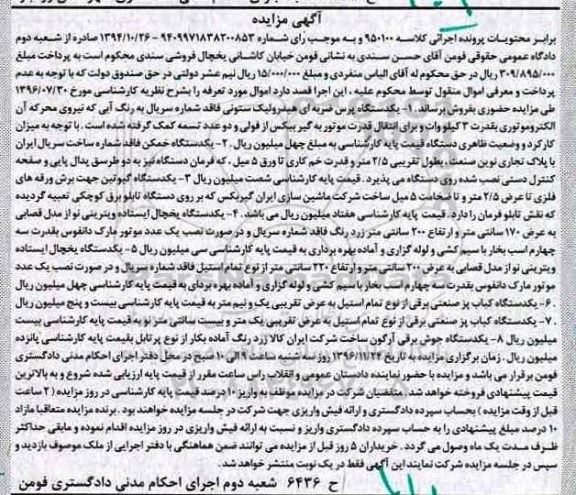 آگهی مزایده
برابر محتویات پرونده اجرائی کلاسه ۹۵۰۱۰۰ و به موجب رأی شماره ۹۴۰۹۹۷۱۸۳۸۲۰۰۸۵۳ - ۱۳۹۴/۱۰/۲۶ صادره از شعبه دوم
دادگاه عمومی حقوقی فومن آقای حسن سندی به نشانی فومن خیابان کاشانی یخچال فروشی سندی محکوم است به پرداخت مبلغ
۳۰۹/۸۹۵/۰۰۰ ریال در حق محکوم له آقای الیاس منفردی و مبلغ ۱۵/۰۰۰/۰۰۰ ریال نیم عشر دولتی در حق صندوق دولت که با توجه به عدم
پرداخت و معرفی اموال منقول توسط محکوم علیه ، این اجرا قصد دارد اموال مورد تعرفه را بشرح نظریه کارشناسی مورخ ۱۳۹۶/۰۷/۳۰
طی مزایده حضوری بفروش برساند. ۱- یکدستگاه پرس ضربه ای هیدرولیک ستونی فاقد شماره سریال به رنگ آبی که نیروی محرکه آن
الکتروموتوری بقدرت ۳ کیلو وات و برای انتقال قدرت موتور به گیر بیکس از فولی و دو عدد تسمه کمک گرفته شده است . با توجه به میزان
کارکرد و وضعیت ظاهری دستگاه قیمت پایه کارشناسی به مبلغ چهل میلیون ریال . ۲- یکدستگاه خمکن فاقد شماره ساخت سریال ایران
با پلاک تجاری نوین صنعت ، بطول تقریبی ۲/۵ متر و قدرت خم کاری تا ورق ۵ میل ، که فرمان دستگاه نیز به دو طرسق پدال پایی و صفحه
کنترل دستی نصب شده روی دستگاه می پذیرد . قیمت پایه کارشناسی شصت میلیون ریال ۳- یکدستگاه گیوتین جهت برش ورقه های
فلزی تا عرض ۲/۵ متر و تا ضخامت ۵ میل ساخت شرکت ماشین سازی ایران گیربکس که بر روی دستگاه تابلو برق کوچکی تعبیه گردیده
که نقش تابلو فرمان را دارد. قیمت پایه کارشناسی هفتاد میلیون ریال می باشد. ۴- یکدستگاه یخچال ایستاده ویترینی نو از مدل قصابی
به عرض ۱۷۰ سانتی متر و ارتفاع ۲۰۰ سانتی متر زرد رنگ فاقد شماره سریال و در صورت نصب یک عدد موتور مارک دانفوس بقدرت سه
چهارم اسب بخار با سیم کشی و لوله گزاری و آماده بهره برداری به قیمت پایه کارشناسی سی میلیون ریال ۵- یکدستگاه یخچال ایستاده
ویترینی نو از مدل قصابی به عرض ۲۰۰ سانتی متر و ارتفاع ۲۲۰ سانتی متر از نوع تمام استیل فاقد شماره سریال و در صورت نصب یک عدد
موتور مارک دانفوس بقدرت سه چهارم اسب بخار با سیم کشی و لوله گزاری و آماده بهره بردای به قیمت پایه کارشناسی چهل میلیون ریال
. ۶- یکدستگاه کباب پز صنعتی برقی از نوع تمام استیل به عرض تقریبی یک و نیم متر به قیمت پایه کارشناسی بیست و پنج میلیون ریال
. ۷- یکدستگاه کباب پز صنعتی برقی از نوع تمام استیل به عرض تقریبی یک متر و بیست سانتی متر نو به قیمت پایه کارشناسی بیست
میلیون ریال ۸- یکدستگاه جوش برقی آرگون ساخت شرکت ایران کالا زرد رنگ آماده بکار از نوع پرتابل بقیمت پایه کارشناسی پانزده
میلیون ریال . زمان برگزاری مزایده به تاریخ ۱۳۹۶/۱۱/۲۴ روز سه شنبه ساعت ۹ الی ۱۰ صبح در محل دفتر اجرای احکام مدنی دادگستری
فومن برقرار می باشد و مزایده با حضور نماینده دادستان عمومی و انقلاب راس ساعت مقرر از قیمت پایه ارزیابی شده شروع و به بالاترین
قیمت پیشنهادی فروخته خواهد شد . متقضیان شرکت در مزایده موظف به واریز ۱۰ درصد قیمت پایه کارشناسی در روز مزایده ( ۲ ساعت
قبل از وقت مزایده ) بحساب سپرده دادگستری و ارائه فیش واریزی جهت شرکت در جلسه مزایده خواهند بود . برنده مزایده متعاقبا مازاد
۱۰ درصد مبلغ پیشنهادی را به حساب سپرده دادگستری واریز و نسبت به ارائه فیش واریزی در روز مزایده اقدام نموده و مابقی حداکثر
ظرف مدت یک ماه وصول می گردد . خریداران ۵ روز قبل از مزایده می توانند ضمن هماهنگی با دفتر اجرایی از ملک موصوف بازدید و
سپس در جلسه مزایده شرکت نمایند این آگهی فقط در یک نوبت منتشر خواهد شد.
ح ۶۴۳۶ شعبه دوم اجرای احکام مدنی دادگستری فومن